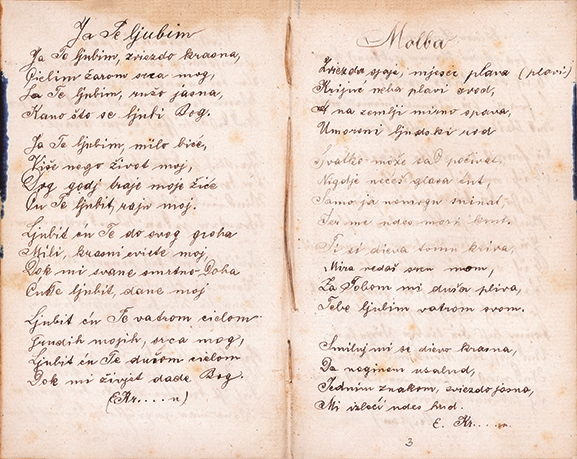 Ja Te ljubim
Ja Te ljubim, zviezdo krasna,
Cielim žarom srca mog,
Ja Te ljubim, ružo jasna,
Kano što se ljubi Bog.
Ja Te ljubim, milo biće,
Više nego život moj,
Dog godj traje moje žiće
Ću Te ljubit, raju moj.
Ljubit ću Te do svog groba
Mili, krasni cviete moj,
Dok mi svane smrtno Doba
Ću Te ljubit, dane moj
Ljubit ću Te vatrom cielom
Grudih mojih, srca mog,
Ljubit ću Te dušom cielom
Dok mi živjet dade Bog.
(E. Kr.....n)
Molba
Zviezda sjaje, mjesec plava (plavi)
Krijuć neba plavi svod,
A na zemlji mirno spava,
Umorni ljudski rod
Svatko može sad počivat,
Nigdje nećeš glasa čut,
Samo ja nemogu snivat,
Jer me udes mori krut.
Ti si dieva tomu kriva,
Mira nedaš srcu mom,
Za Tobom mi duša pliva,
Tebe ljubim vatrom svom.
Smiluj mi se dievo krasna,
Da neginem usalud,
Jednim znakom, zviezdo jasna,
Mi izlieči udes hud.
E. Kr.....n
3